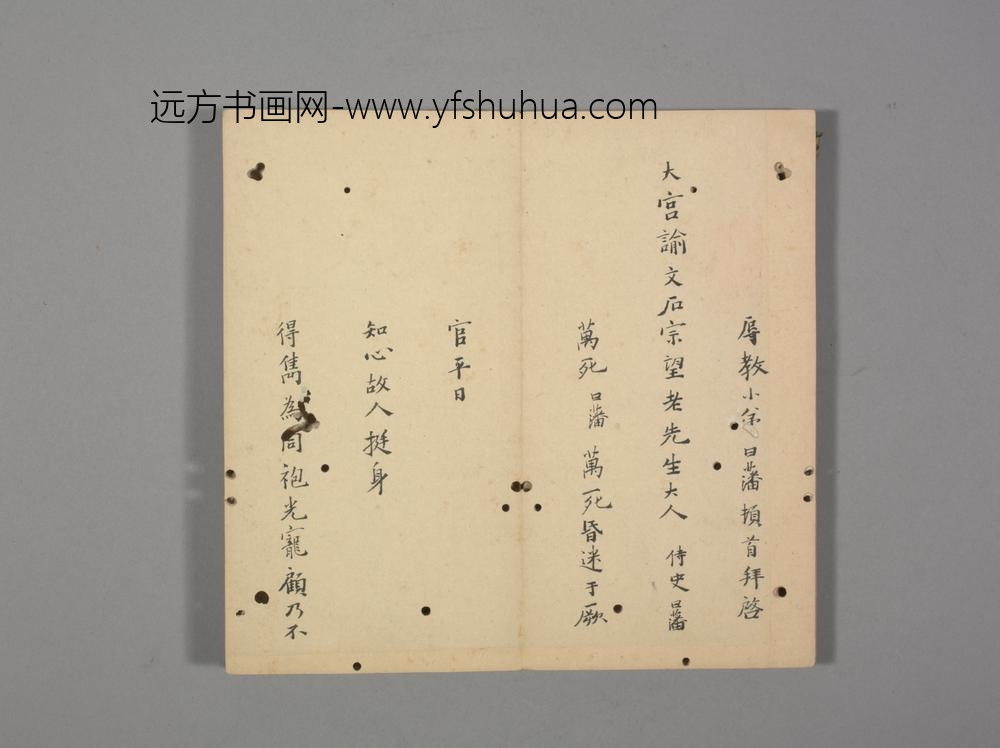 远方书画网-www.yfshuhua.com
辱教小弟日藩頓首拜啓
大宫諭文石宗望老先生大人 侍史日藩
萬死日藩萬死昏迷于厥
官平日
知心故人挺身
得雋為同袍光寵顧乃不